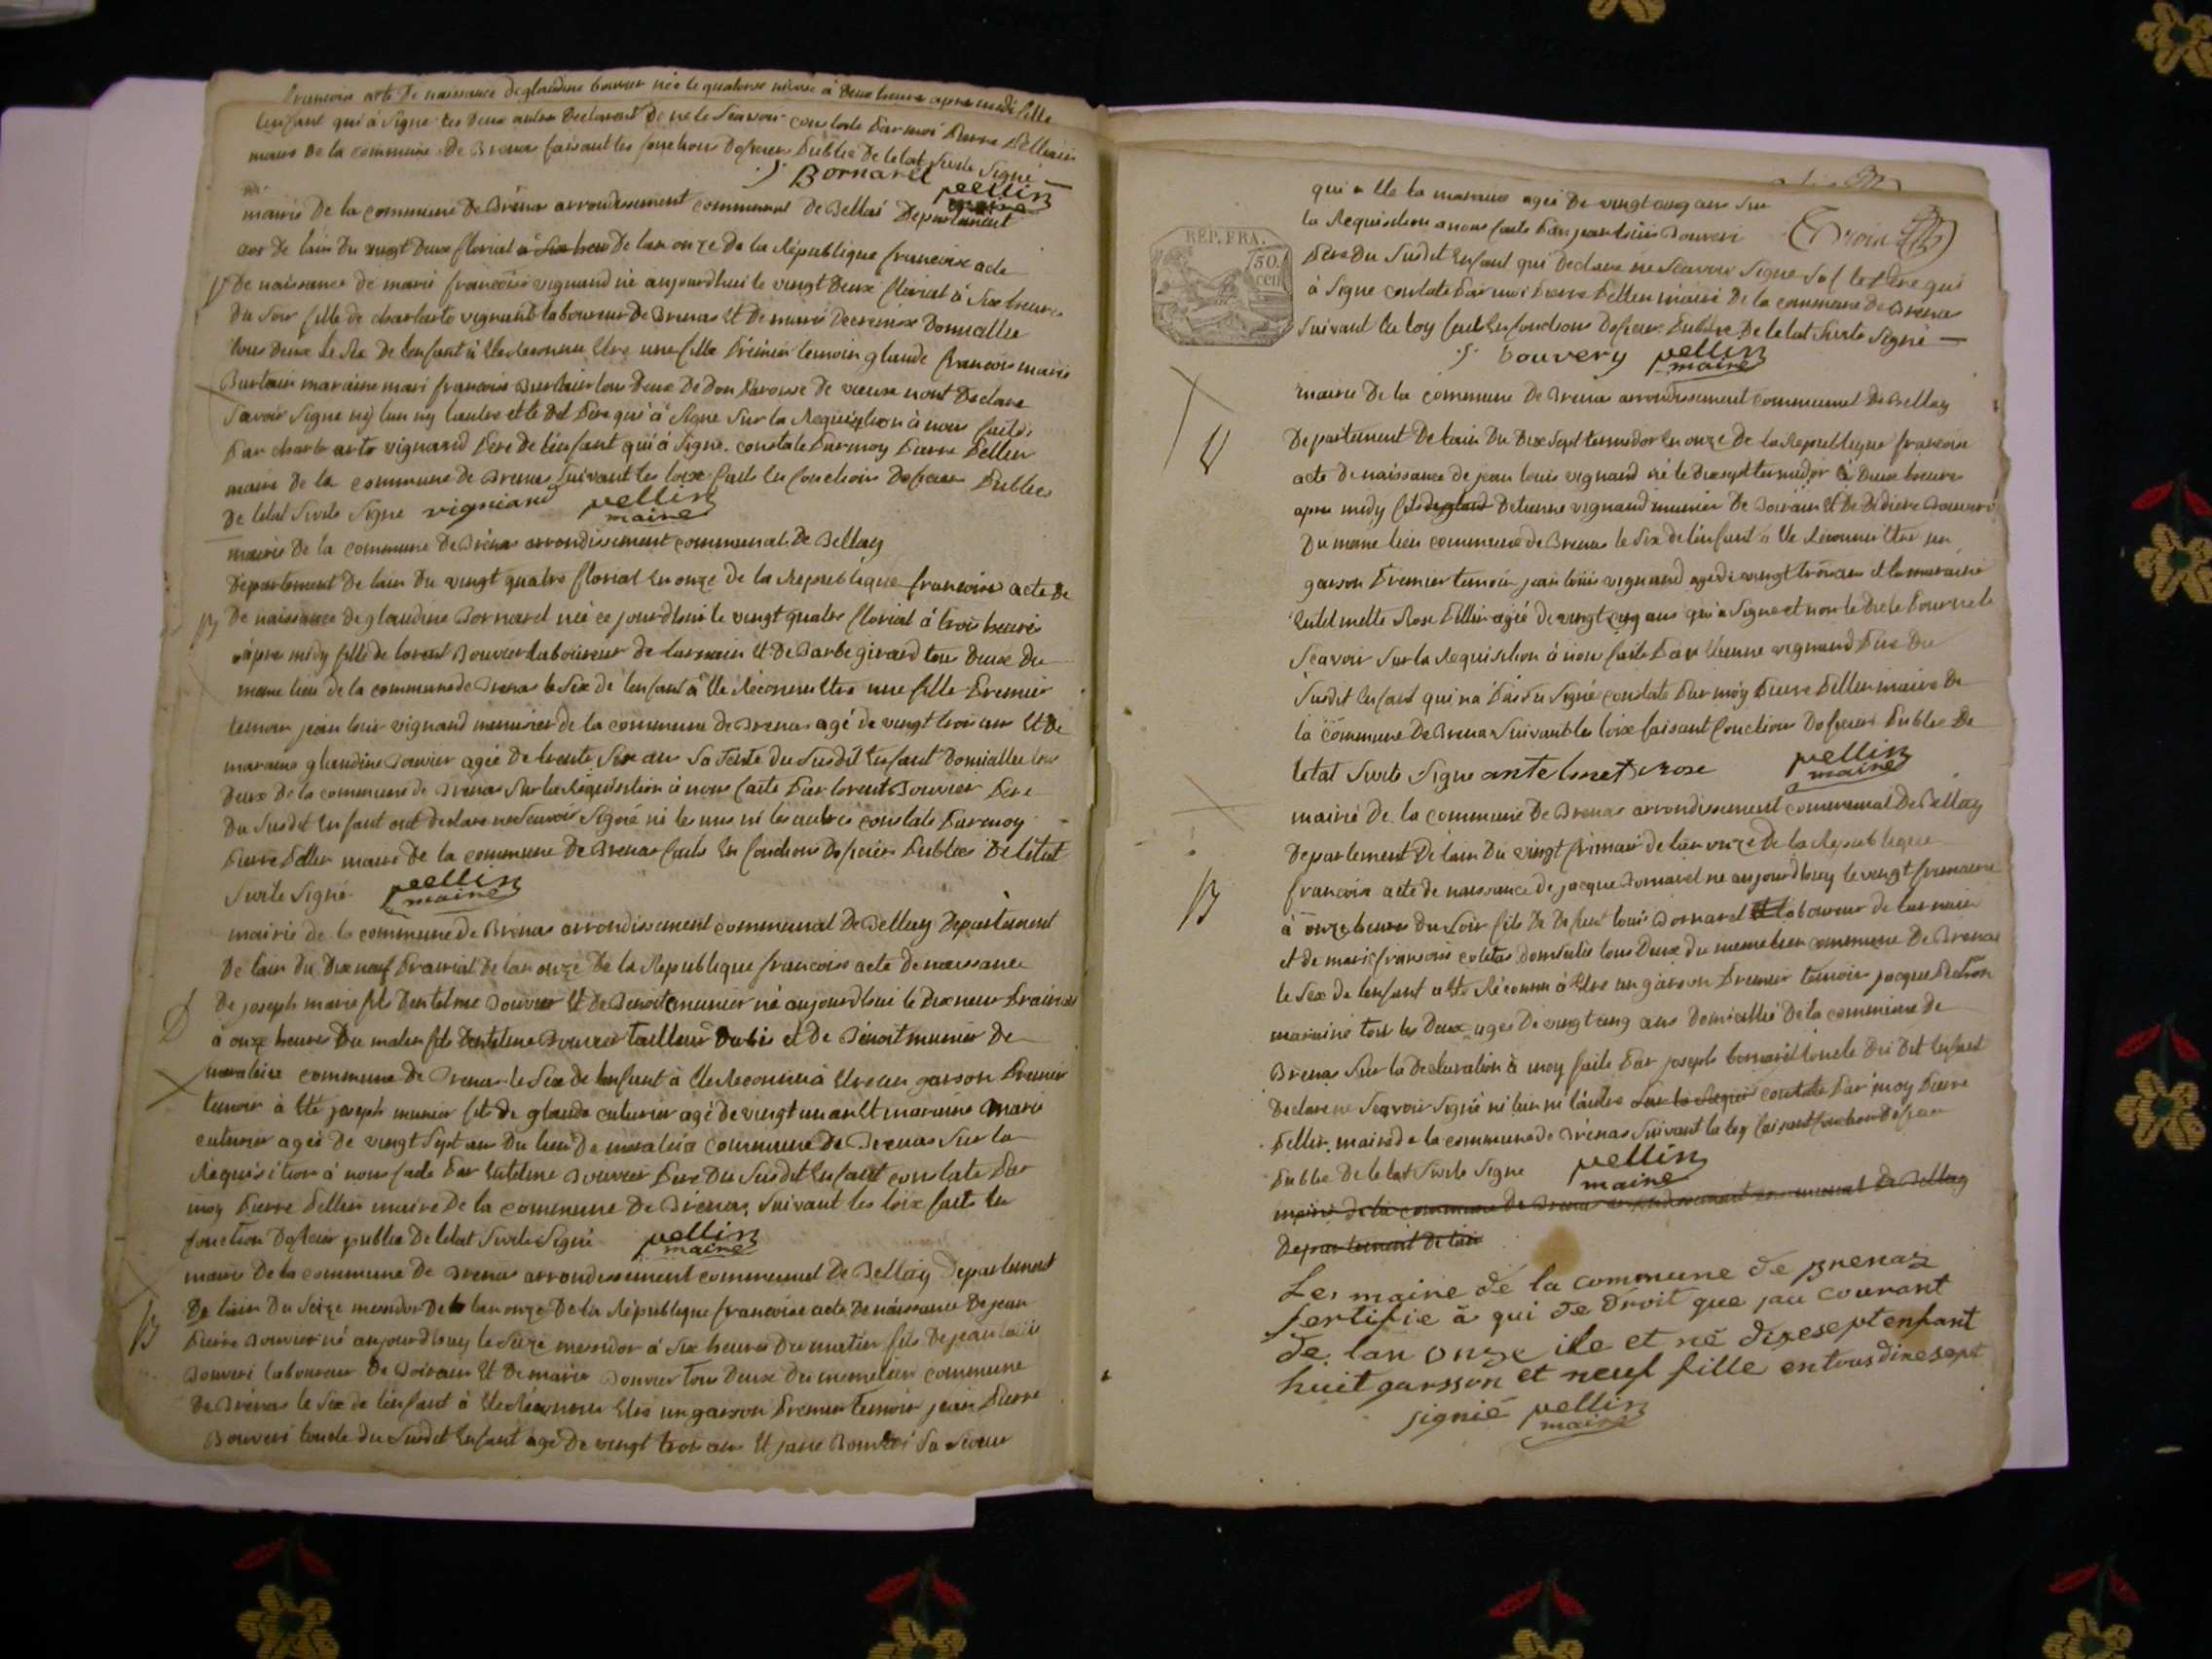 francoise acte De naissance De glaudine bouvier née le quatorze nivose à Deux heures apres midi fille
lenfant qui à Signe les Deux autres Declarent De ne le Scavoir constate Par moi Pierre Pellin
maire De la commune De Brenas faisant les fonctions Doficier Public De letat Sivile Signe
J Bornard pellin maire
mairie De la commune De Brenas arrondissement communal De Bellai Departement
De lain Du vingt Deux florial De lan onze De la Republique francoise acte
De naissance De marie francoise vignand né aujourdhui le vingt Deux florial à Six heures
Du Soir fille de charle vignand laboureur De Brenas Et De marie Domicillie
tous Deux Le Sex De lenfant à Ete Reconnu Etre une fille Premier temoin glaude francois marie
Burtain maraine mari francoise Burtain tous Deux De nont Declare
Savoir Signe ny lun ny lautre et le Dit Pere qui à Signe Sur la Requisition à nous faite
Par charle vignand Pere De lenfant qui à Signe. constate Par moy Pierre Pellin
maire De la commune De Brenas Suivant les loix fails les fonctions Doficier Publics
De letat Sivile Signe vigniand pellin maire
mairie De la commune De Brenas arrondissement communal De Bellay
Departement De lain Du vingt quatre florial En onze De la Republique francoise acte De
De naissance De glaudine Bornard née ce jourdhui le vingt quatre florial à trois heures
apres midy fille De lorent Bouvier laboureur de larnain Et De Barbe girard tous Deux Du
meme lieu De la commune de Brenas le Sex de lenfant à Ete Reconnu Etre une fille Premier
temoin jean louis vignand meunier de la commune De Brenas agé de vingt trois ans Et De
maraine glaudine Bouvier agée De trente Six ans Sa tente Du Susdit Enfant Domicillee tous
Deux De la commune de Brenas Sur la Requisition à nous faite Par lorent Bouvier Pere
Du Susdit Enfant ont declare ne Scavoir Signé ni les uns ni les autres constate Par moy
Pierre Pellin maire De la commune De Brenas fails En fonctions Doficier Publics De letat
Sivile Signé pellin maire
mairie de la commune de Brenas arrondissement communal De Bellay Departement
De lain du Dix neuf Prairial De lan onze De la Republique francoise acte De naissance
De joseph marie fils Dentelme Bouvier Et De Benoit munier né aujourdhui le Dix neuf Prairial
à onze heures Du matin fils Dentelme Bouvier tailleur Dabis et De Benoit munier De
commune de Brenas le Sex de lenfant à Ete Reconnu à Etre un garson Premier
temoin à Ete joseph munier fils de glaude cuturier agé de vingt un an Et maraine marie
cuturier agée De vingt Sept ans Du lieu De commune De Brenas Sur la
Requisition à nous faite Par Entelme Bouvier Pere Du Susdit Enfant constate Par
moy Pierre Pellin maire De la commune De Brenas, Suivant les loix fails les
fonction Doficier public De letat Sivile Signé pellin maire
mairie De la commune De Brenas arrondissement communal De Bellay Departement
De lain Du Seize mesidor De lan onze De la Republique francoise acte De naissance De jean
Pierre Bouvier né aujourdhuy le Seize mesidor à Six heures Du matin fils De jean louis
Bouveri laboureur De Boirain Et De marie Bouvier tous Deux Du meme lieu commune
De Brenas le Sex de lenfant à Ete Reconnu Etre un garson Premier temoin jean Pierre
Bouveri loncle du Susdit Enfant age De vingt trois ans Et jane Bouveri Sa Seour
qui a Ete la maraine agée De vingt cinq ans Sur
la Requisition a nous faite Par jean louis Bouveri
Pere Du Susdit Enfant qui Declare ne Scavoir Signe le Pere qui
à Signe constate Par moi Pierre Pellin maire De la commune De Brenas
Suivant la loy fails En fonctions Doficier Public De letat Sivile Signé
J bouvery pellin maire
REP. FRA.
50. cen
trois
mairie De la commune De Brenas arrondissement communal De Bellay
Departement De lain Du Dix Sept termidor En onze De la Republique francoise
acte De naissance de jean louis vignand né le dix sept termidor à Deux heures
apres midy fils De glaud Detienne vignand munier De Boirain Et De Bouveri
Du meme lieu commune de Brenas le Sex de lenfant à Ete Reconnu Etre un
garson Premier temoin jean louis vignand agé De vingt trois ans et la maraine
Entelmette Rose Pellin agée De vingt cinq ans qui à Signe
Scavoir Sur la Requisition à nous faite Par Etienne vignand Pere Du
Susdit Enfant qui na Pas Su Signé constate Par moy Pierre Pellin maire De
la commune De Brenas Suivant les loix faisant fonctions Doficier Public De
letat Sivile Signe antelmet Rose pellin maire
mairie De la commune De Brenas arrondissement communal De Bellay
Departement De lain Du vingt frimair de lan onze De la Republique
francoise acte De naissance De jacque Bornard né aujourdhuy le vingt frimaire
à onze heures Du Soir fils De Defunt louis Bornard laboureur de larnain
et de marie fransoise coletas Domicilies tous Deux du meme lieu commune De Brenas
le Sex de lenfant a Ete Reconnu à Etre un garson Premier temoin jacque
maraine tous les Deux agés De vingt cinq ans Domicilié De la commune de
Brenas Sur la Declaration à moy faite Par joseph bornard loncle Du Dit Enfant
Declare ne Scavoir Signé ni lun ni lautre Sur la Requi constate Par moy Pierre
Pellin maire de la commune de Brenas Suivant la loy faisant fonction Doficier
Public De letat Sivile Signe pellin maire
mairie de la commune De Brenas arrondissement communal De Bellay
Departement De lain
Les maire de la commune de prenaz
sertifie à qui de droit que jau courant
de lan onze ile et né dixesept enfant
huit garsson et neuf fille en tous dixesept
signié pellin maire